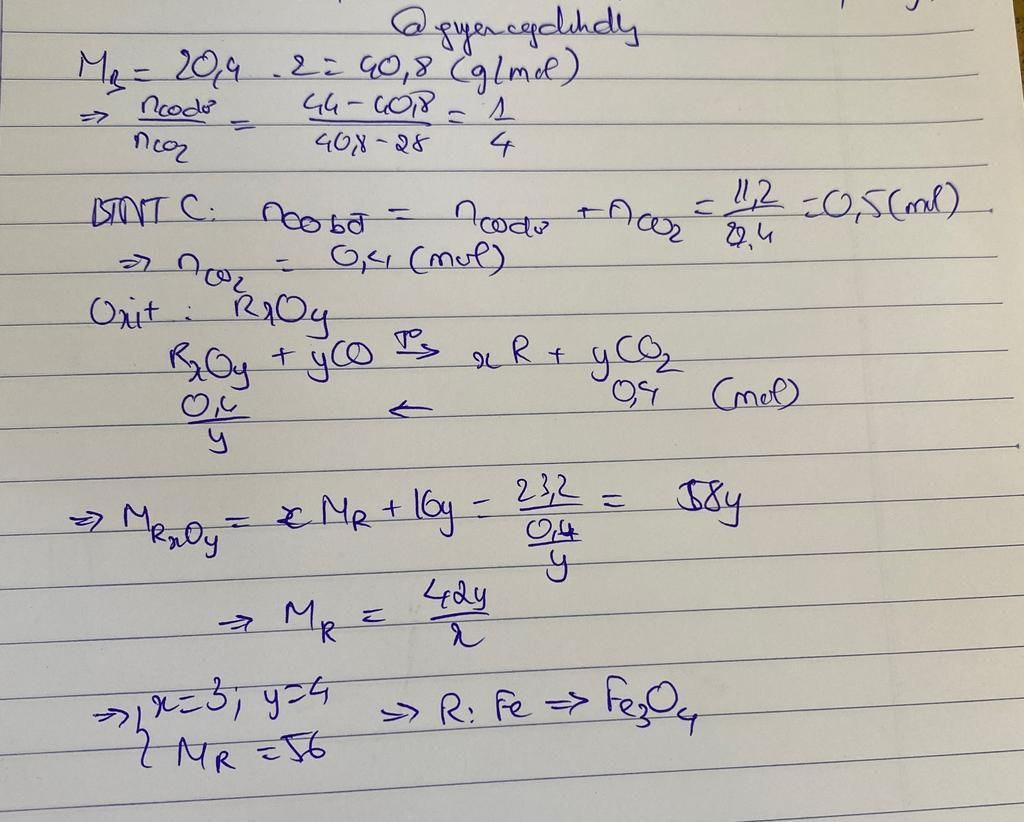 M_B = 20,4 . 2 = 40,8 (g/mol)
=> n_CO dư / n_CO2 = (44 - 40,8) / (40,8 - 28) = 1/4
BTNT C: n_CO bđ = n_CO dư + n_CO2 = 11,2 / 22,4 = 0,5 (mol)
=> n_CO2 = 0,4 (mol)
Oxit : RxOy
RxOy + yCO t°→ xR + yCO2
0,4/y ← 0,4 (mol)
=> M_RxOy = x M_R + 16y = 23,2 / (0,4/y) = 58y
=> M_R = 42y / x
=> { x=3; y=4
M_R = 56 => R: Fe => Fe3O4